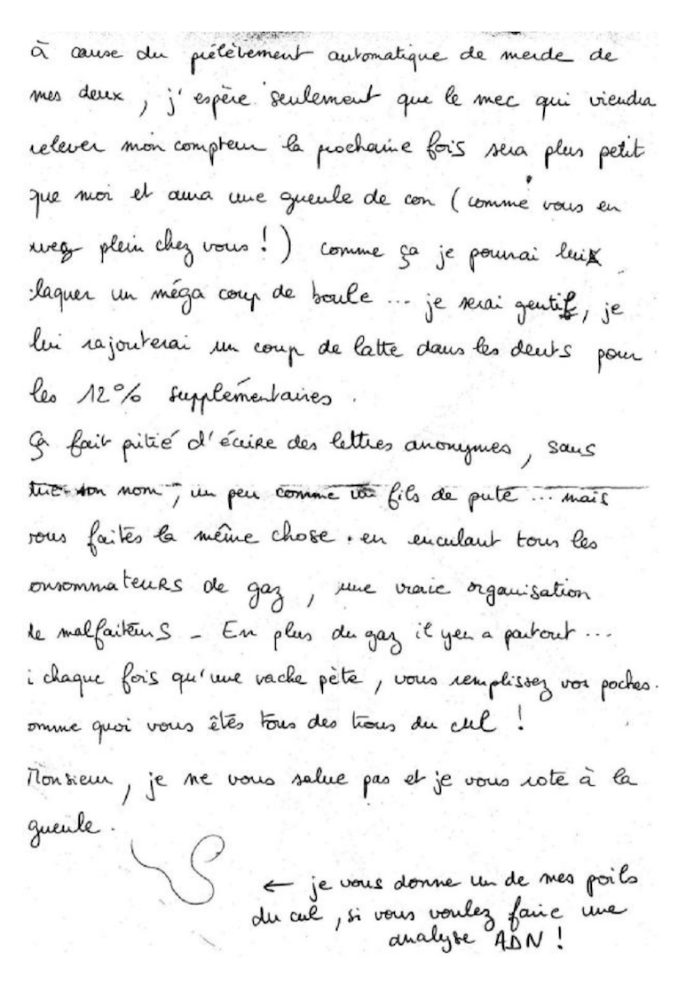 à cause du prélèvement automatique de merde de
mes deux, j'espère seulement que le mec qui viendra
relever mon compteur la prochaine fois sera plus petit
que moi et aura une gueule de con (comme vous en
avez plein chez vous !) comme ça je pourrai lui
claquer un méga coup de boule ... je serai gentil, je
lui rajouterai un coup de latte dans les dents pour
les 12% supplémentaires.
Ça fait pitié d'écrire des lettres anonymes, sans
son nom, un peu comme un fils de pute ... mais
vous faites la même chose. en enculant tous les
onsommateurs de gaz, une vraie organisation
de malfaiteurs - En plus du gaz il yen a partout ...
i chaque fois qu'une vache pète, vous remplissez vos poches.
omme quoi vous êtês tous des trous du cul !
Monsieur, je ne vous salue pas et je vous rote à la
gueule.
← je vous donne un de mes poils
du cul, si vous voulez faire une
analyse ADN !